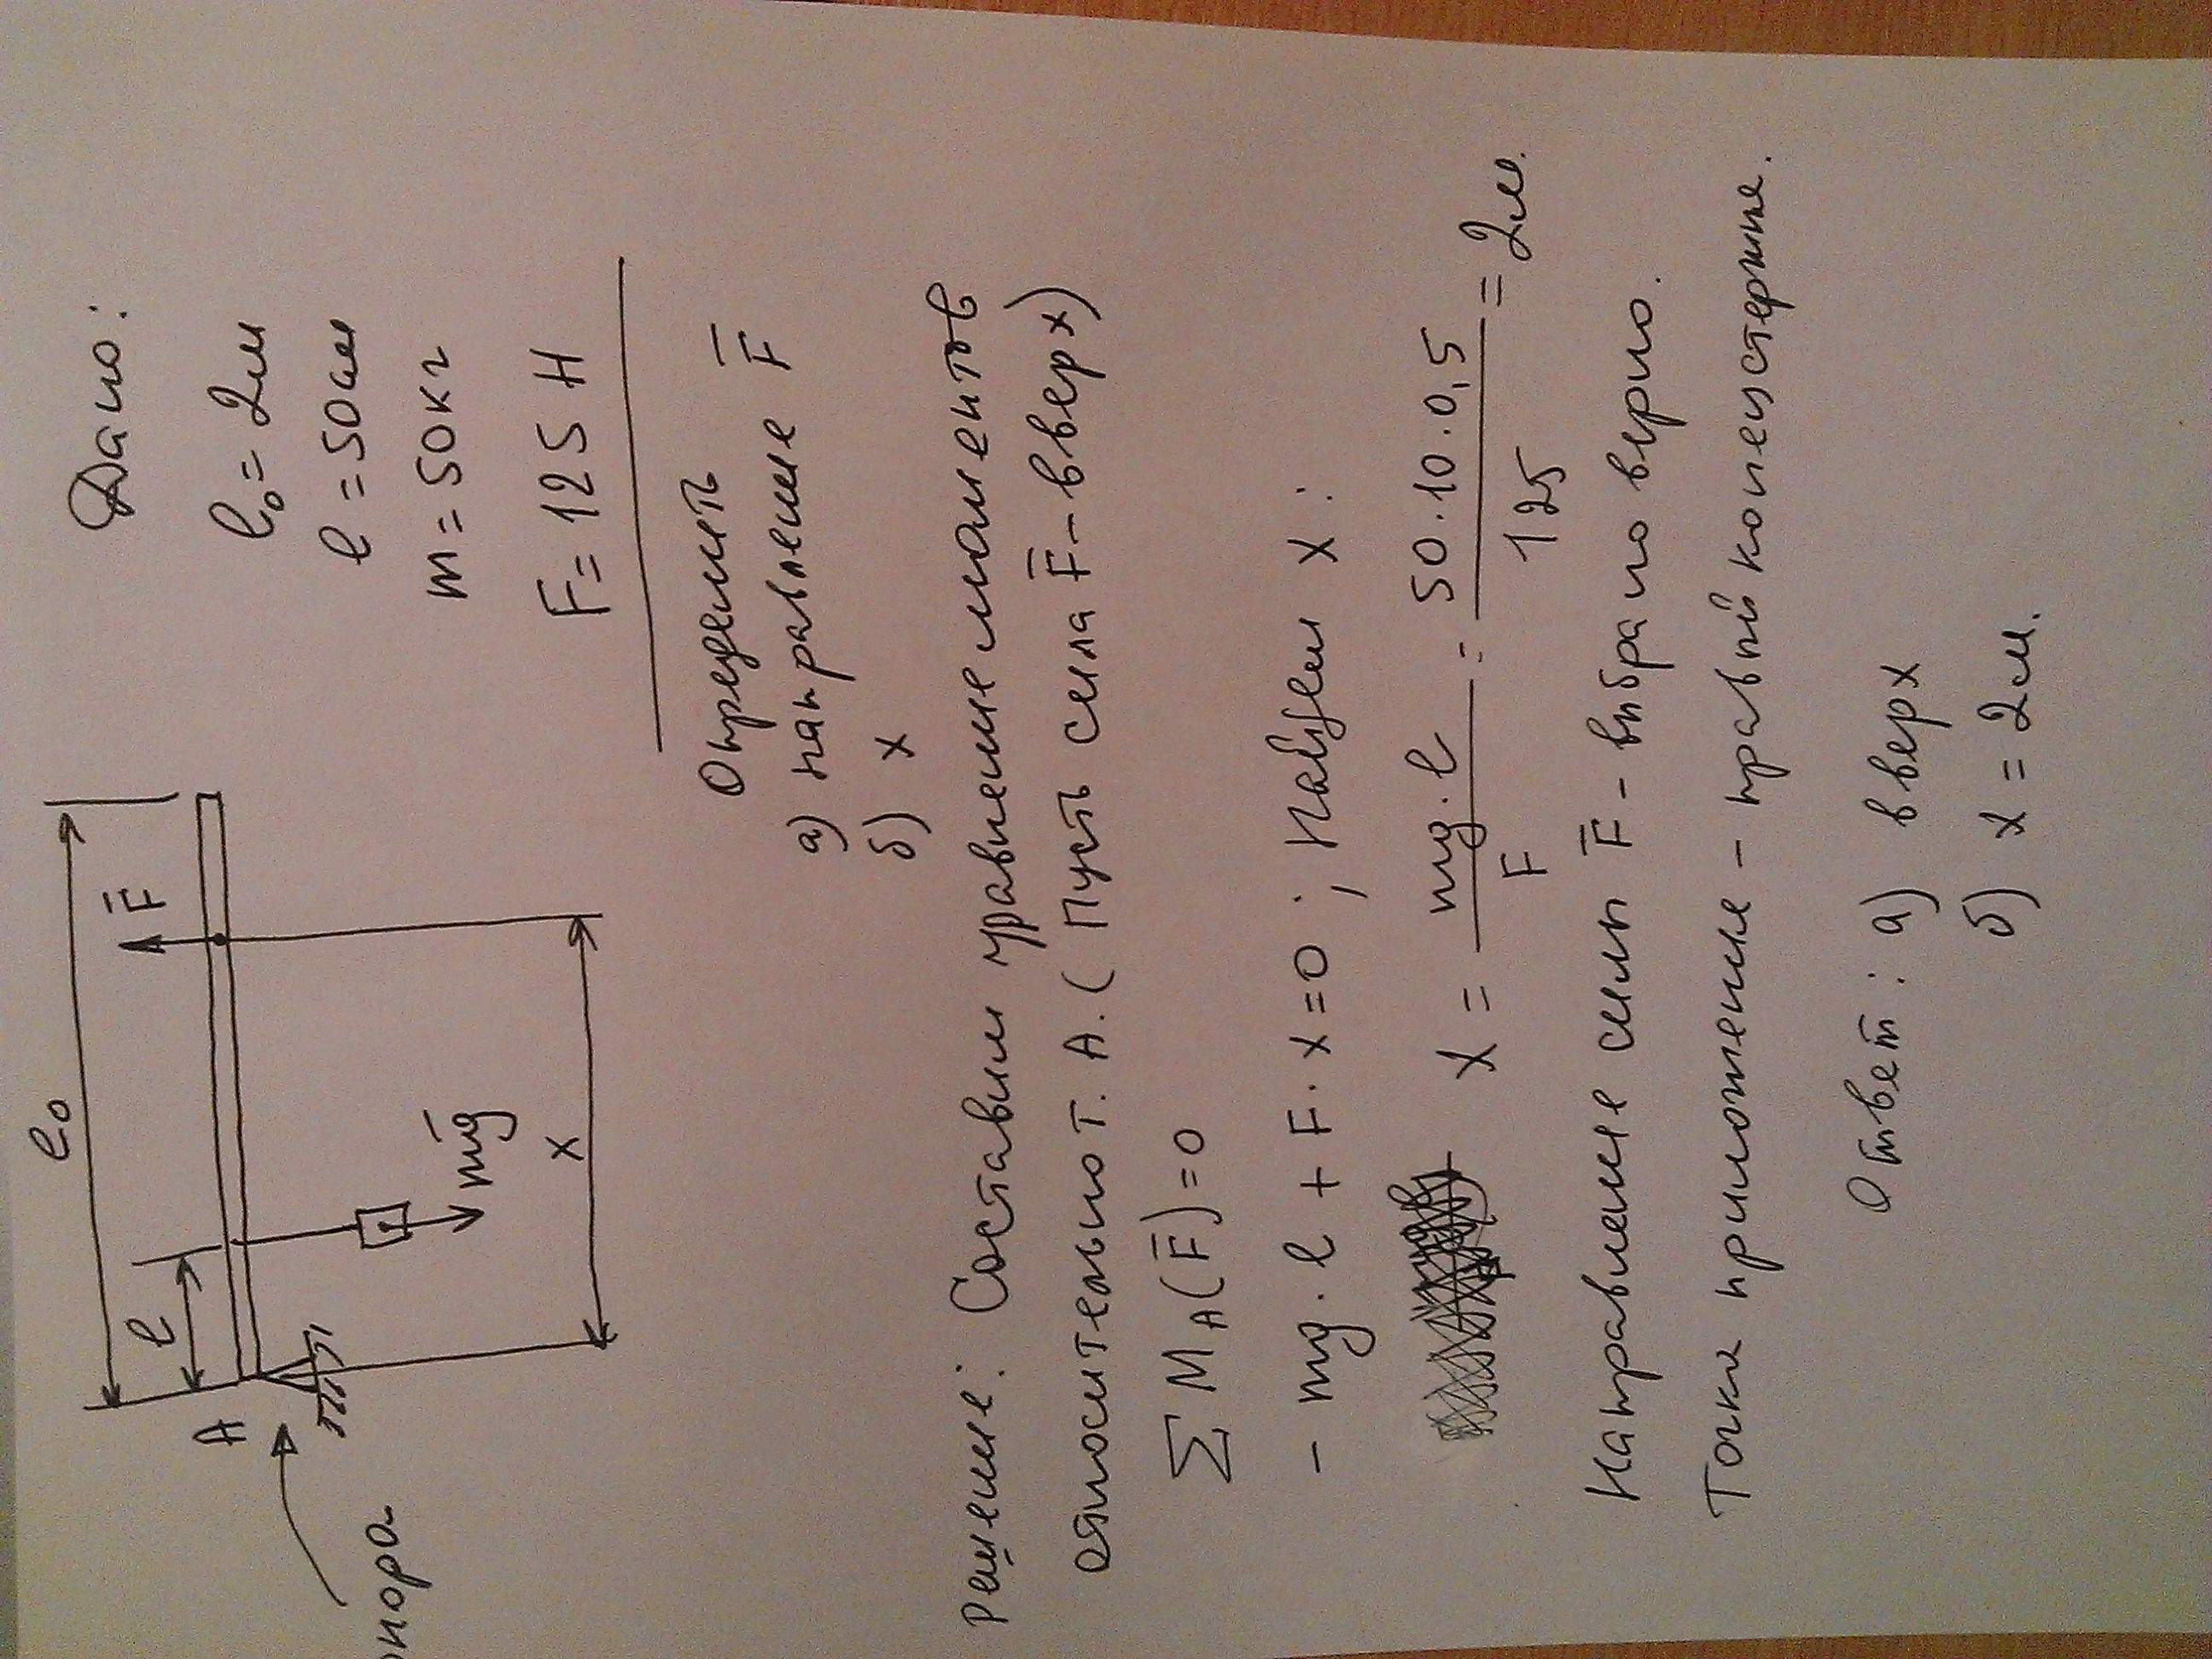 l₀
l
A
опора
F̄
mḡ
x
Дано:
l₀ = 2м
l = 50см
m = 50кг
F = 125 Н
Определить
а) направление F̄
б) x
Решение: Составим уравнение моментов
относительно т. А. (Пусть сила F̄ – вверх)
∑ M_A (F̄) = 0
- mg · l + F · x = 0 ; Найдем x :
x = mg · l / F = 50 · 10 · 0,5 / 125 = 2м.
Направление силы F̄ - выбрано верно.
Точка приложение - правый конец стержня.
Ответ: а) вверх
б) x = 2м.